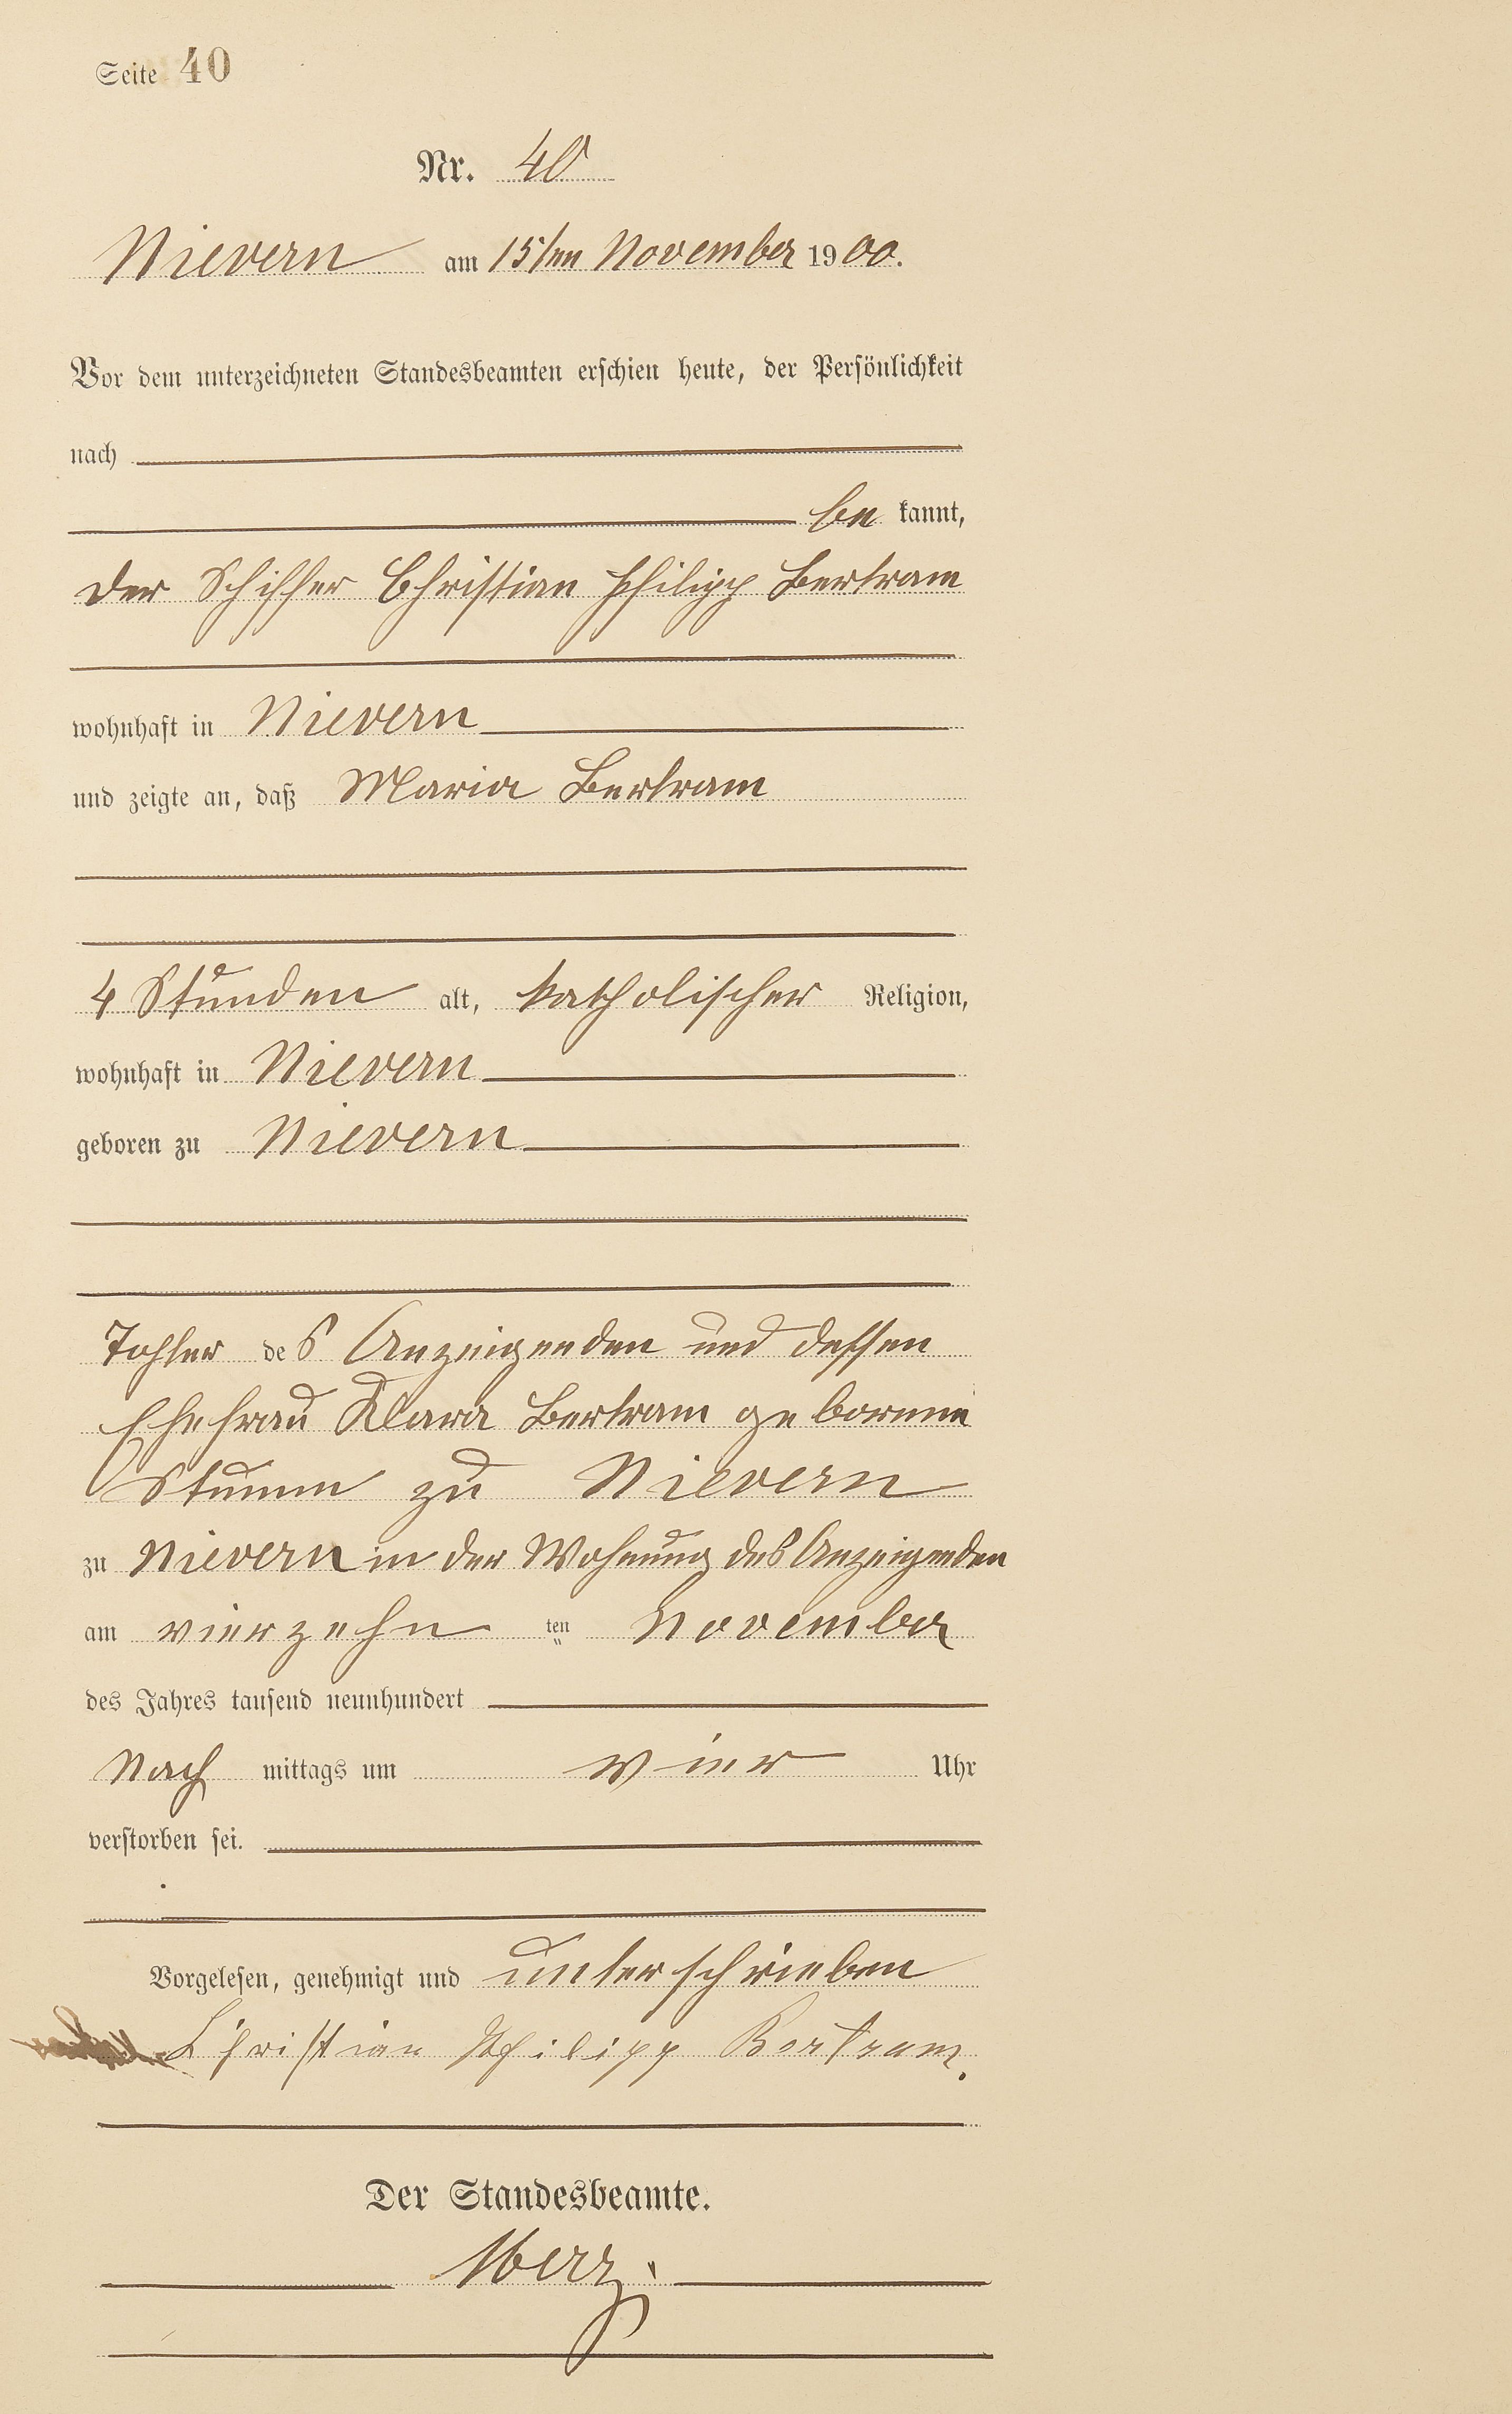 Seite 40
Nr. 40
Nievern am 15ten November 1900.
Vor dem unterzeichneten Standesbeamten erschien heute, der Persönlichkeit
nach
be kannt,
der Schiffer Christian Philipp Bertram
wohnhaft in Nievern
und zeigte an, daß Maria Bertram
4 Stunden alt, katholischer Religion,
wohnhaft in Nievern
geboren zu Nievern
Tochter des Anzeigenden und dessen
Ehefrau Klara Bertram geborenen
Stumm zu Nievern
zu Nievern in der Wohnung des Anzeigenden
am vierzehn ten November
des Jahres tausend neunhundert
Nach mittags um vier Uhr
verstorben sei.
Vorgelesen, genehmigt und unterschrieben
Christian Philipp Bertram.
Der Standesbeamte.